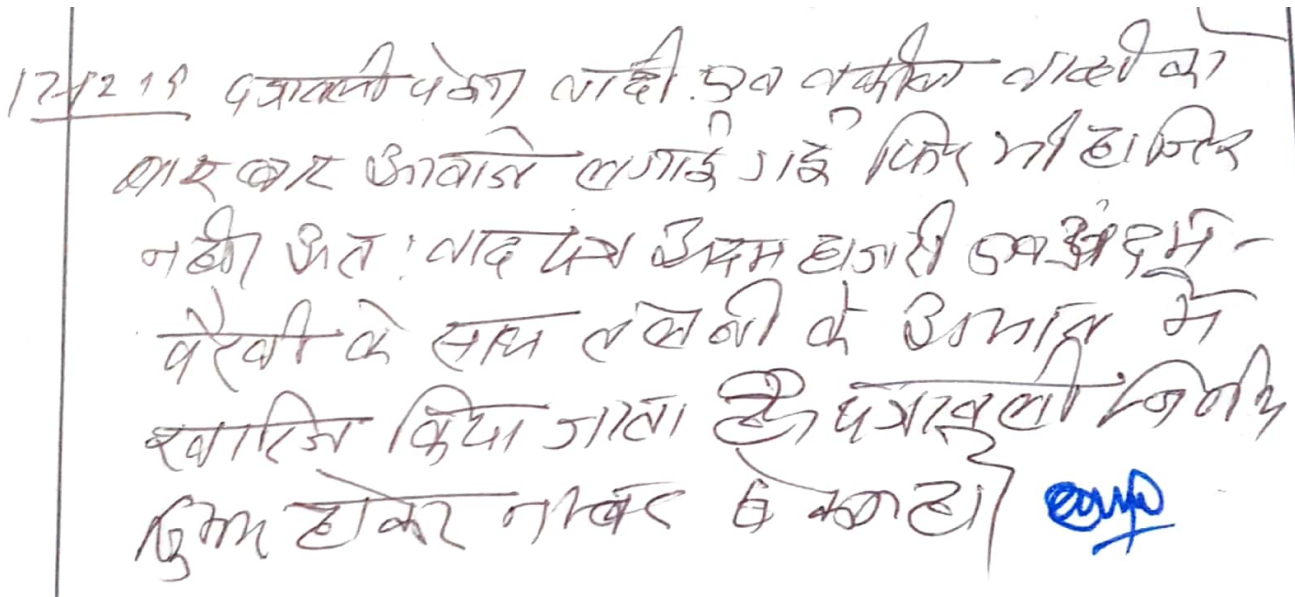 17-12-19 पत्रावली पेश। वादी एवं वकील वादी को
बार बार आवाजे लगाई गई फिर भी हाजिर
नही अतः वाद पत्र अदम हाजरी एवं अदम-
पैरवी के साथ तलबी के अभाव में
खारिज किया जाता है। पत्रावली निर्णित
शुमार होकर नम्बर से कम हो।